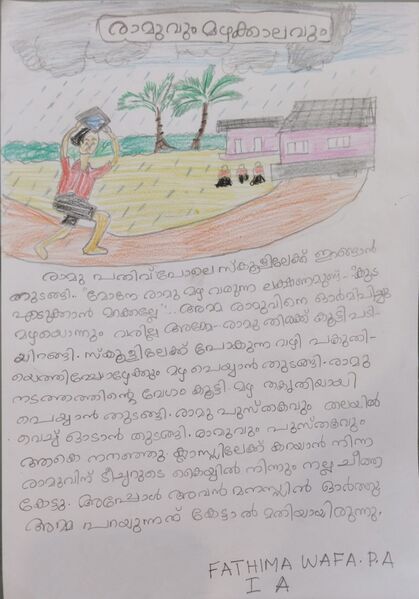 രാമുവും മഴക്കാലവും
രാമു പതിവ്പോലെ സ്കൂളിലേക്ക് ഇറങ്ങാൻ
തുടങ്ങി. "മോനേ രാമു മഴ വരുന്ന ലക്ഷണമുണ്ട്. "കുട
എടുക്കാൻ മറക്കല്ലേ".. അമ്മ രാമുവിനെ ഓർമിപ്പിച്ചു
മഴയൊന്നും വരില്ല അമ്മേ- രാമു തിരക്ക് കൂട്ടി പടി-
യിറങ്ങി. സ്കൂളിലേക്ക് പോകുന്ന വഴി പകുതി-
യെത്തിച്ചപ്പോഴേക്കും മഴ പെയ്യാൻ തുടങ്ങി. രാമു
നടത്തത്തിന്റെ വേഗം കൂട്ടി. മഴ തകൃതിയായി
പെയ്യാൻ തുടങ്ങി. രാമു പുസ്തകവും തലയിൽ
വെച്ച് ഓടാൻ തുടങ്ങി. രാമുവും പുസ്തകവും
ആകെ നനഞ്ഞു. ക്ലാസ്സിലേക്ക് കയറാൻ നിന്ന
രാമുവിന് ടീച്ചറുടെ കൈയ്യിൽ നിന്നും നല്ല ചീത്ത
കേട്ടു. അപ്പോൾ അവൻ മനസ്സിൽ ഓർത്തു
അമ്മ പറയുന്നത് കേട്ടാൽ മതിയായിരുന്നു.
FATHIMA WAFA. P.A
I A